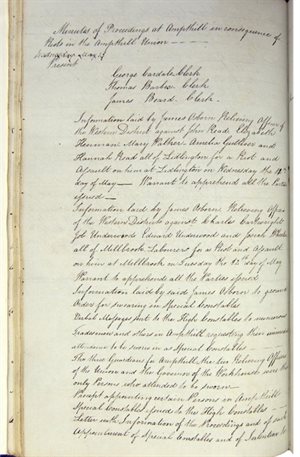 Minutes of Proceedings at Ampthill in consequence of
Riots in the Ampthill Union
Wednesday May
Present
George Cardale Clerk
Thomas Barber Clerk
James Beard Clerk
Information laid by James Osborn Relieving Officer
the Western District against John Reade Elizabeth
Henman Mary Rather Amelia and
Hannah Read all of Lidlington for a Riot and
Assault on him at Lidlington on Wednesday the
day of May — Warrant to apprehend all the Parties
issued —
Information laid by James Osborn Relieving Officer
of the Western District against Charles
Job Underwood Edward Underwood and Joseph
all of Millbrook Labourers for a Riot and Assault
on him at Millbrook on Tuesday the 12th day of May
Warrant to apprehend all the Parties issued
Information laid by said James Osborn to ground
Order for swearing in Special Constables
Verbal Messages sent to the High Constables to numerous
Tradesmen and others in Ampthill requesting their immediate
attendance to be sworn in as Special Constables
The three Guardians for Ampthill, the two Relieving Officers
of the Union and the Governor of the Workhouse were the
only Persons who attended to be sworn —
Precept appointing certain Persons in Ampthill
Special Constables issued to the High Constables —
Letter with Information of the Proceedings and of such
Appointment of Special Constables and of Intention to